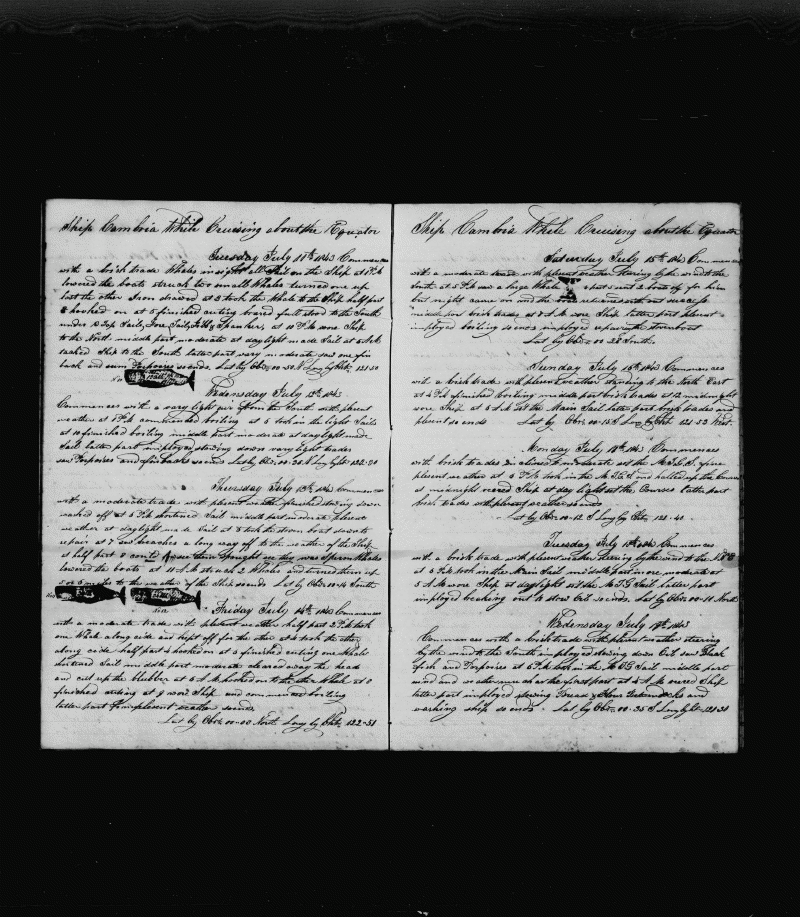 Ship Cambria While Cruising about the Equator
Tuesday July 11th 1843 Commences
with a brisk trade Whales in sight all Sail on the Ship at 1 P.M
lowered the boats struck two small Whales turned one up
lost the other Iron drawed at 3 took the Whale to the Ship half past
hooked on at 5 finished cutting braced full stood to the South
under Top Sails Fore Sail Jibb & Spanker, at 10 P.M wore Ship
to the North middle part moderate at daylight made Sail at 5 A.M
tacked Ship to the South latter part very moderate saw one fin
back and some Porpoises so ends. Lat by Obs. 00-30 N Long by Chr. 121-50
Wednesday July 12th 1843
Commences with a very light air from the South with plesent
weather at 1 P.M commenced boiling at 5 took in the light Sails
at 10 finished boiling middle part moderate at daylight made
Sail latter part employed stowing down very light trades
saw Porpoises and finbacks so ends Lat by Obs. 00-30 N Long by Chr. 122-00
Thursday July 13th 1843 Commences
with a moderate trade with plesent weather finished stowing down
washed off at 5 P.M shortened Sail middle part moderate plesent
weather at daylight made Sail at took the stern boat down to
repair at 7 saw breaches a long way off to the weather of the Ship
at half past 8 thought they was Sperm Whales
lowered the boats at 10 A.M struck 2 Whales and turned them up
5 or 6 miles to the weather of the Ship so ends Lat by Obs. 00-14 South
Friday July 14th 1843 Commences
with a moderate trade with plesent weather half past 2 P.M took
one Whale along side and kept off for the other at 4 took the other
along side half past 4 hooked on at finished cuting one Whale
shortened Sail middle part moderate cleared away the head
and cut up the blubber at 5 A.M hooked on to the other Whale at
finished cutting at 9 wore Ship and commenced boiling
latter part plesent weather so ends
Lat by Obs. 00-00 North Long by Chr. 122-31
Ship Cambria While Cruising about the Equator
Saturday July 15th 1843 Commences
with a moderate trade with plesent weather steering by the wind to the
South at 5 P.M saw a large Whale at 5 sent 2 boats off for him
but night came on and the boats returned without success
middle part brisk trades at 7 A.M wore Ship latter part plesent
imployed boiling so ends imployed repairing the sternboat
Lat by Obs. 00-28 South.
Sunday July 16th 1843 Commences
with a brisk trade with plesent weather standing to the North East
at 4 P.M finished boiling middle part brisk trades at 12 midnight
wore Ship at 5 A.M set the Main Sail latter part brisk trades and
plesent so ends Lat by Obs. 00-15 S Long by Chr. 121-52 West.
Monday July 17th 1843 Commences
with brisk trades inclined to moderate set the M.T.G.S. fine
plesent weather at 5 P.M took in the M.T.G.S and hauled up the Courses
at midnight veered Ship at day light set the Courses latter part
brisk trades with plesent weather so ends
Lat by Obs. 00-12 S Long by Chr. 121-40
Tuesday July 18th 1843 Commences
with a brisk trade with plesent weather steering by the wind to the N E
at 5 P.M took in the Main Sail middle part more moderate at
5 A.M wore Ship at daylight set the M.T.G Sail latter part
imployed breaking out to stow Oil so ends. Lat by Obs. 00-11 North
Wednesday July 19th 1843
Commences with a brisk trade with plesent weather steering
by the wind to the South imployed stowing down Oil saw Black
fish and Porpoises at 5 P.M took in the M T G Sail middle part
wind and weather much as the first part at 5 A.M veered Ship
latter part imployed stowing Bread and
washing ship so ends Lat by Obs. 00-35 S Long by Chr. 121-31